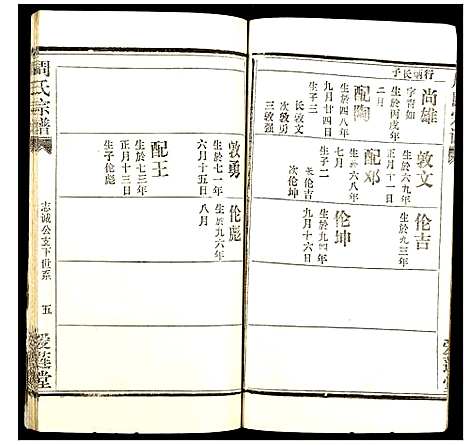 行炳长子
尚雄
字育如
生於丙戌年
二月
配陶
生於四八年
九月廿四日
生子三
长敦文
次敦勇
三敦强
敦文
生於六九年
正月十一日
配邓
生於六八年
七月
生子二
长伦吉
次伦坤
伦吉
生於九三年
伦坤
生於九四年
九月十六日
敦勇
生於七一年
六月十五日
配王
生於七三年
正月十三日
生子伦彪
伦彪
生於九六年
八月
周氏宗谱
志诚公支下世系
五
爱莲堂